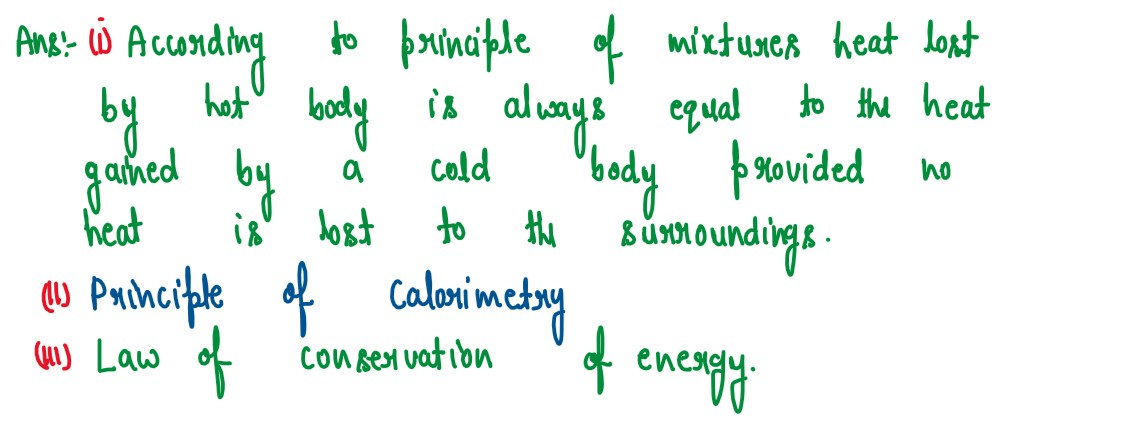 Ans:- (i) According to principle of mixtures heat lost
by hot body is always equal to the heat
gained by a cold body provided no
heat is lost to the surroundings.
(ii) Principle of Calorimetry
(iii) Law of conservation of energy.